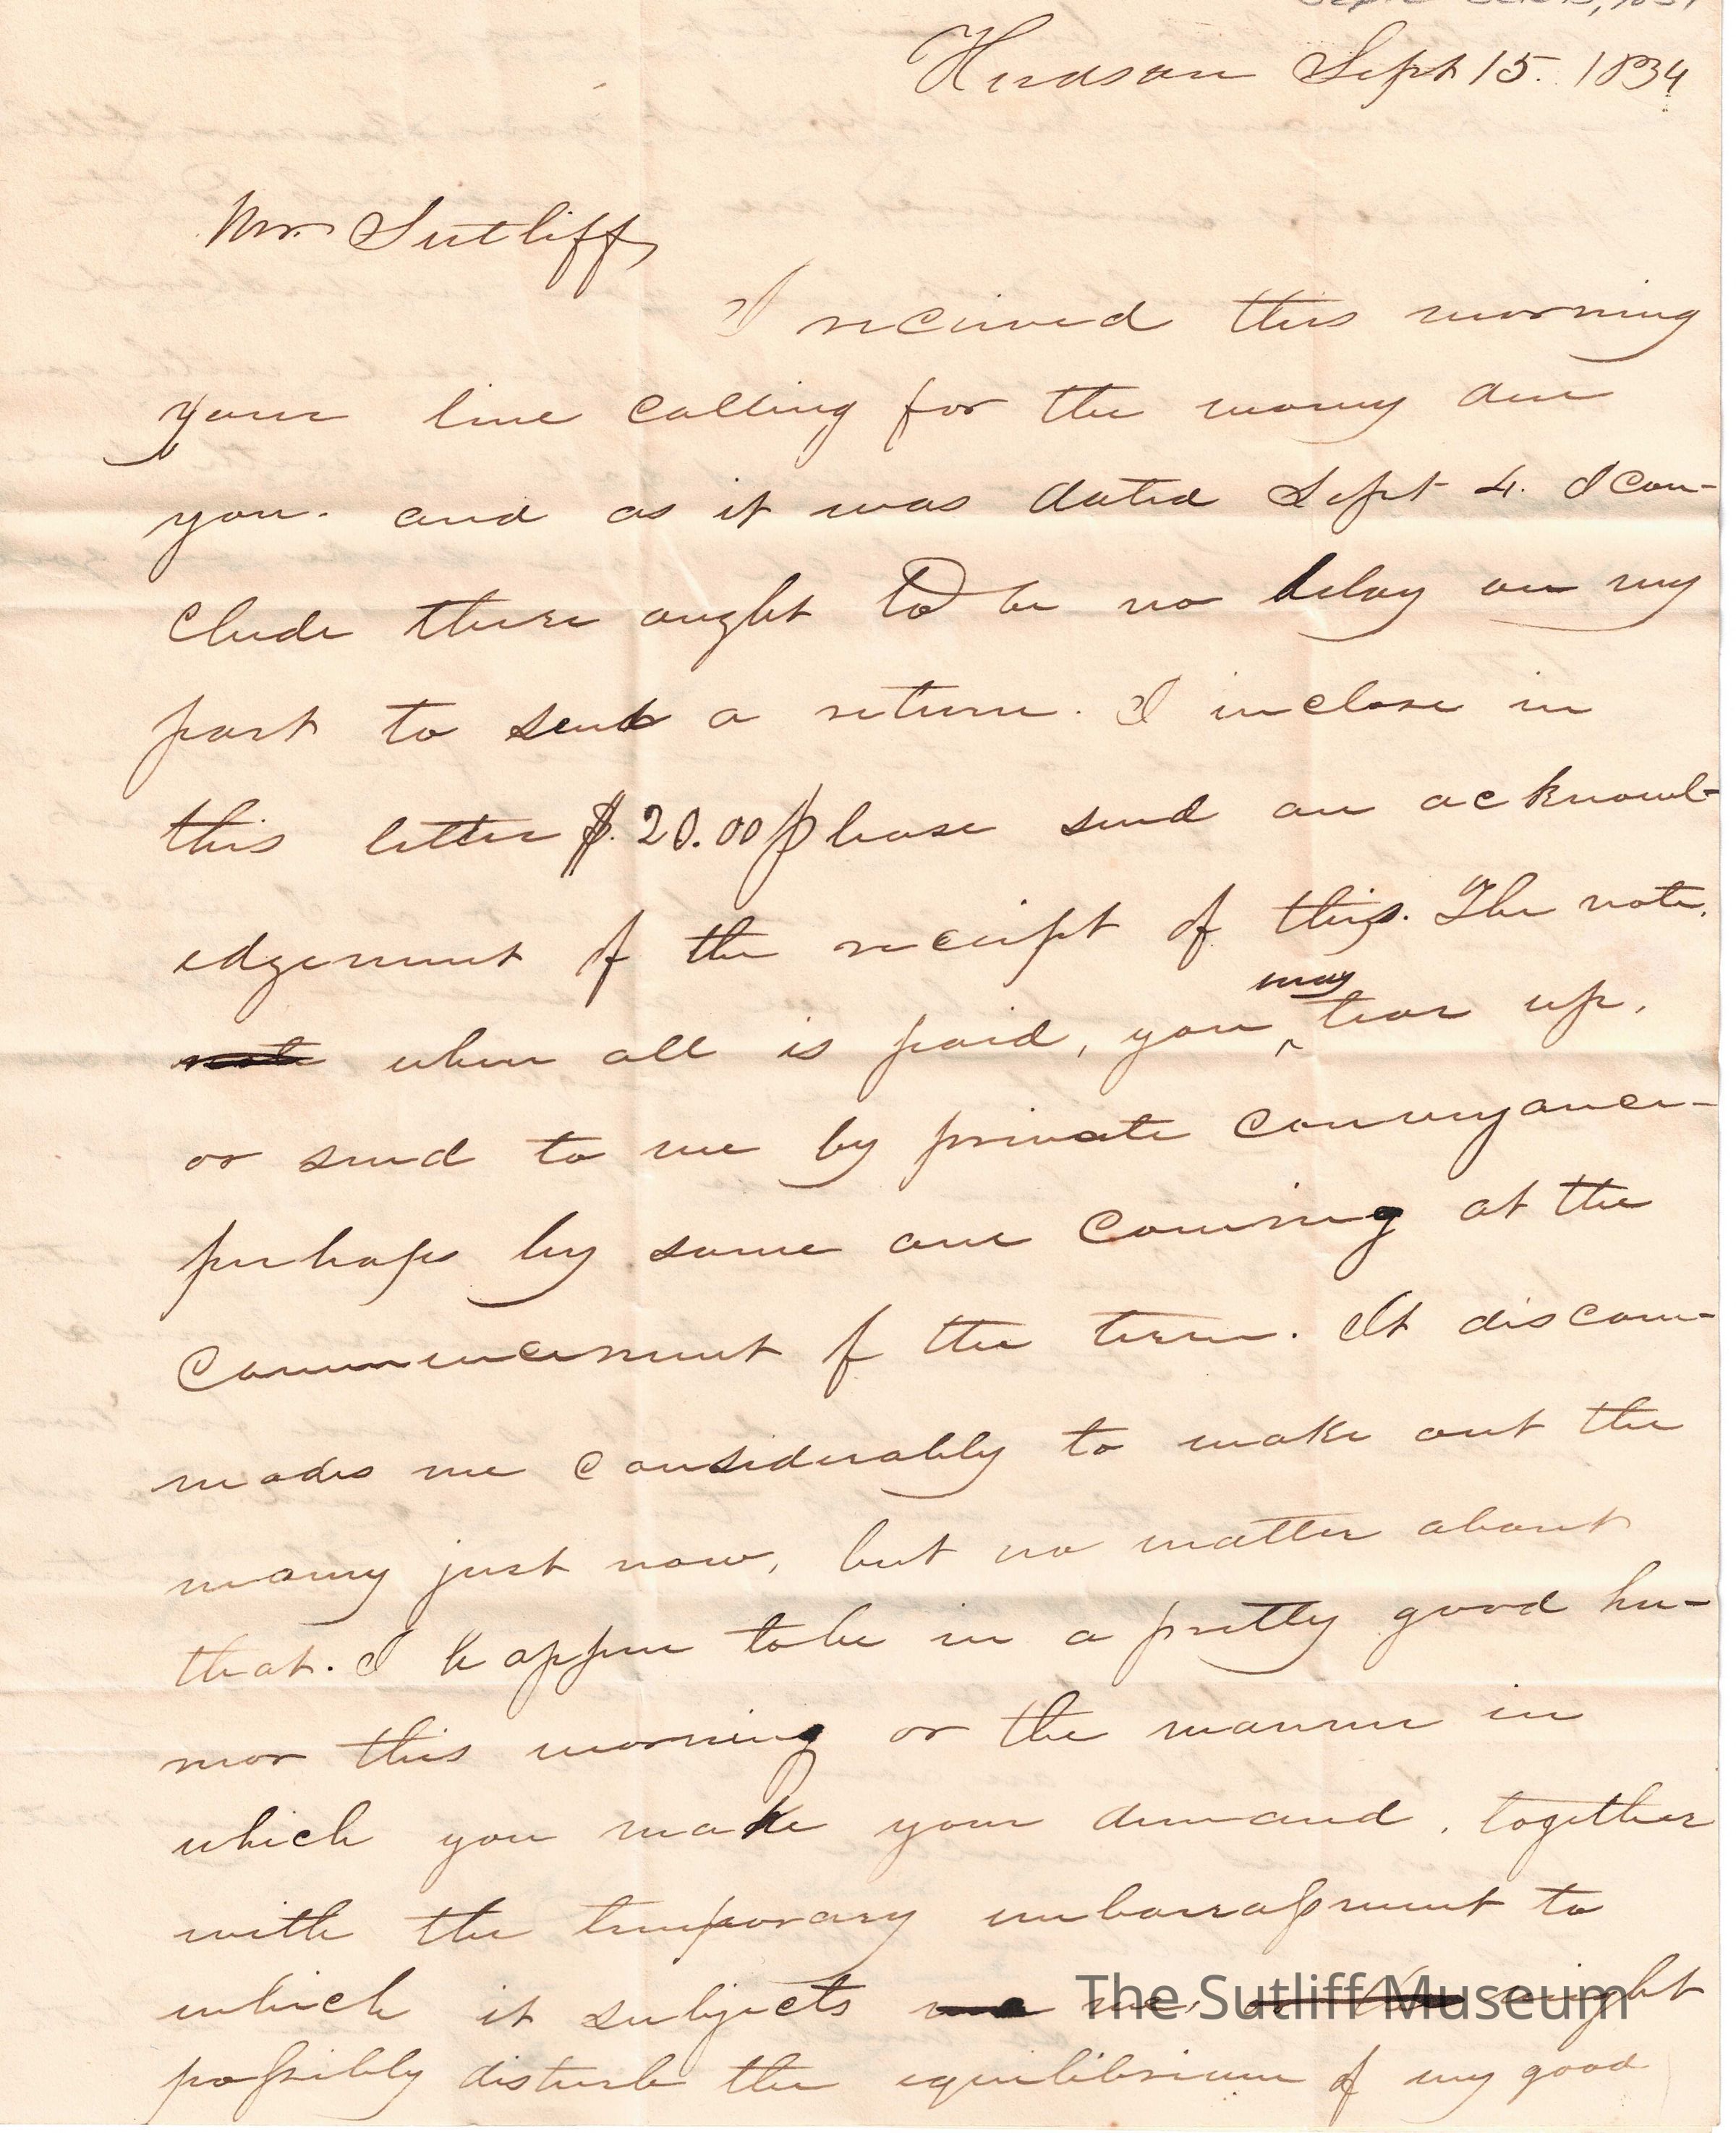 Hudson Sept 15. 1834
Mr. Sutliff,
I received this morning
your line calling for the money due
you. and as it was dated Sept 4. I con-
clude there ought to be no delay on my
part to send a return. I inclose in
this letter $.20.00 please send an acknowl-
edgement of the receipt of this. The note,
note when all is paid, you may tear up,
or send to me by private conveyance-
perhaps by some one coming at the
commencement of the term. It discom-
modes me considerably to make out the
money just now, but no matter about
that. I happen to be in a pretty good hu-
mor this morning or the manner in
which you make your demand, together
with the temporary embarrassment to
which it subjects me, might
possibly disturb the equilibrium of my good
The Sutliff Museum